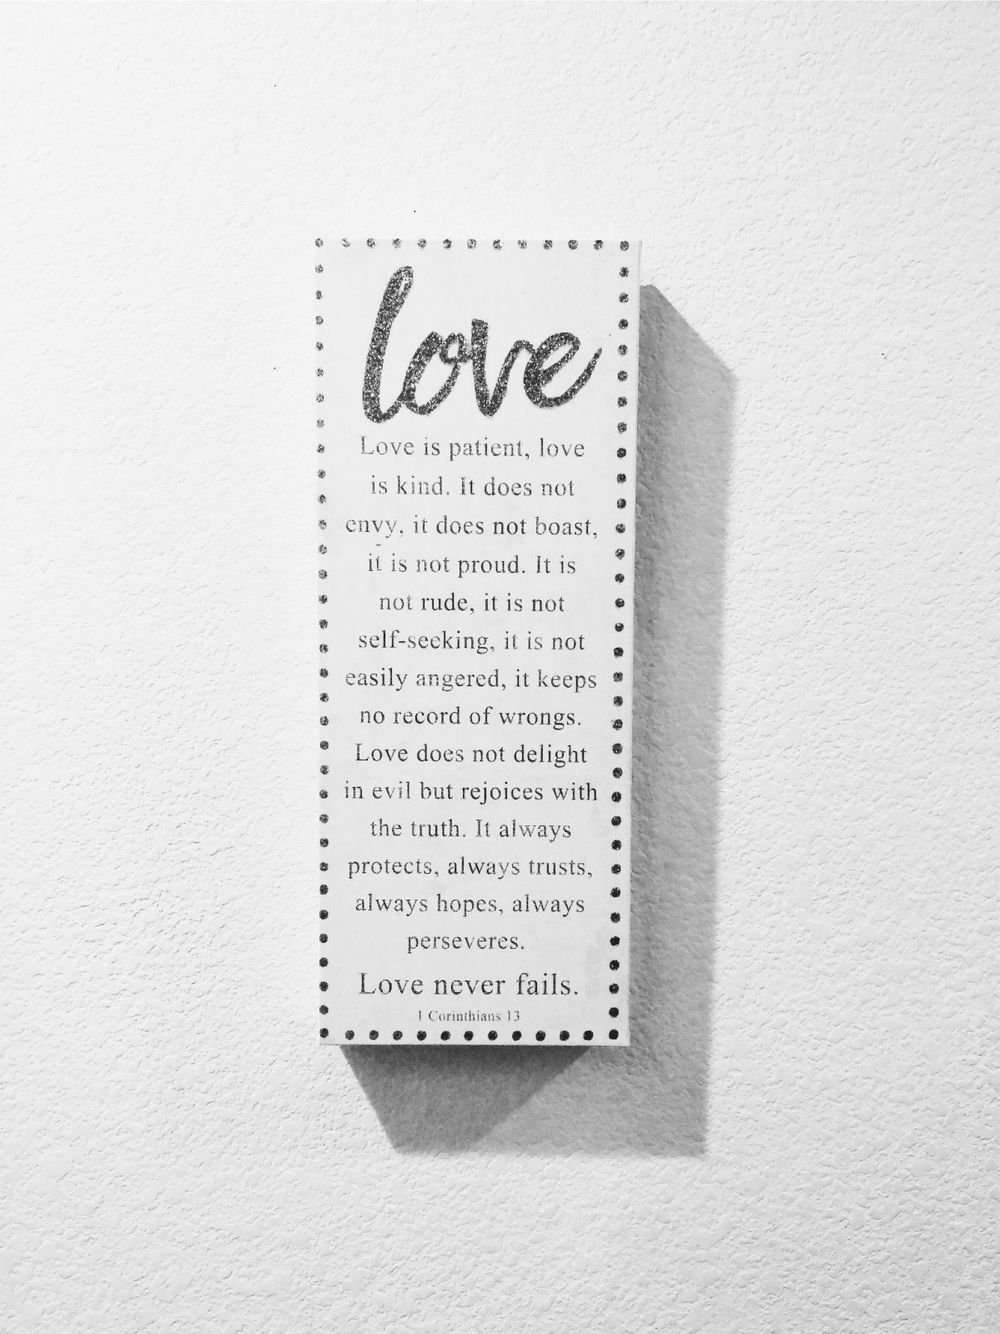 love
Love is patient, love
is kind. It does not
envy, it does not boast,
it is not proud. It is
not rude, it is not
self-seeking, it is not
easily angered, it keeps
no record of wrongs.
Love does not delight
in evil but rejoices with
the truth. It always
protects, always trusts,
always hopes, always
perseveres.
Love never fails.
1 Corinthians 13